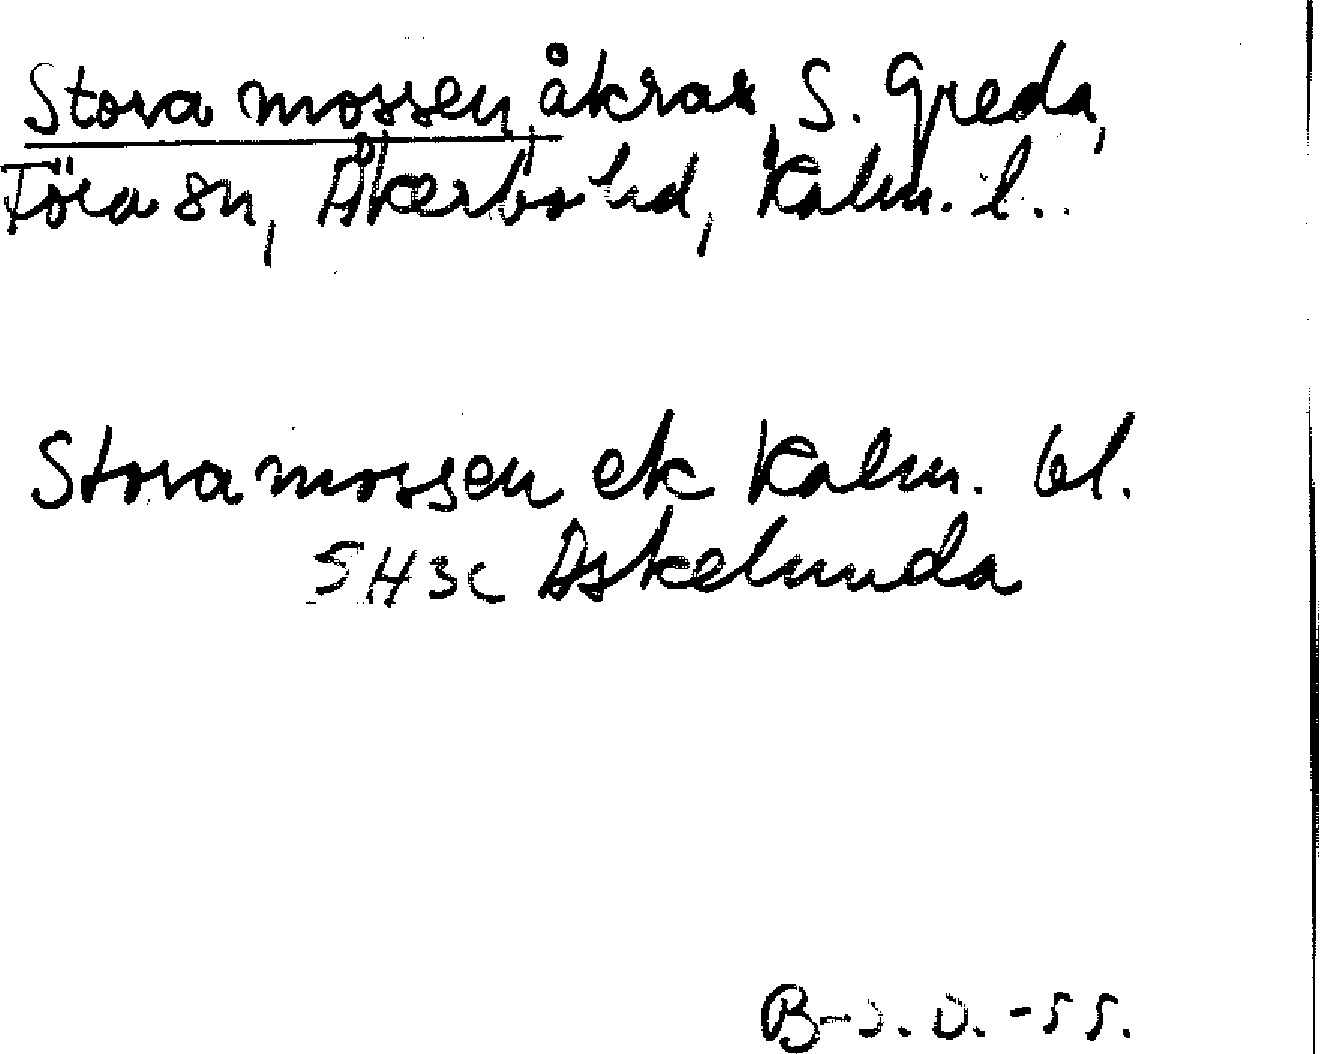 Stora mossen, åkrar, S. Greda,
Föra sn, Åkerbo hd, Kalm. l.
Stora mossen ek Kalm. bl.
5H3c Askelunda
B-s. O. -55.